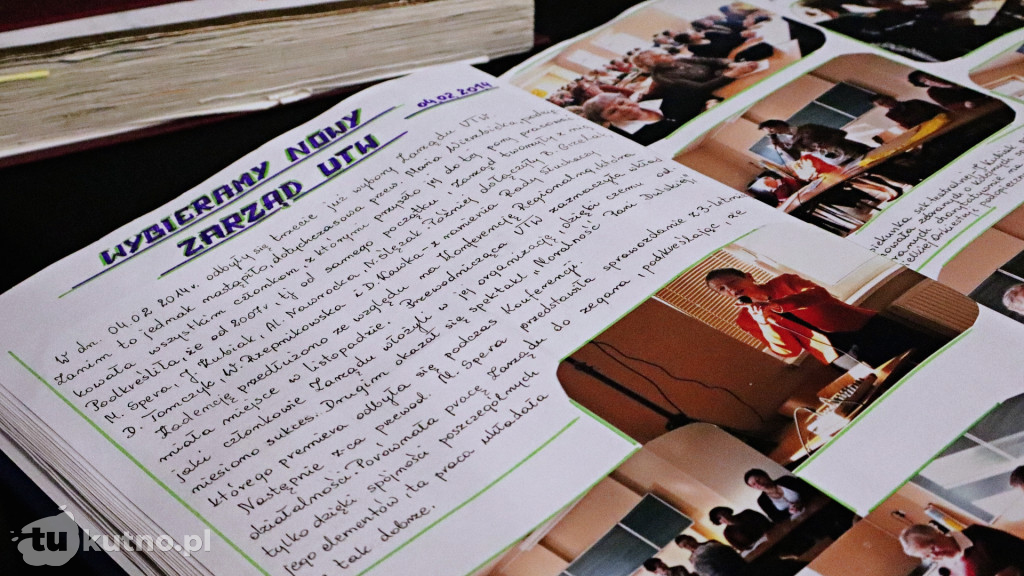 04.02.2014
WYBIERAMY NOWY
ZARZĄD UTW
W dn. 04.02.2014r. odbyły się trzecie już wybory Zarządu UTW
Zanim to jednak nastąpiło, dotychczasowa przew. Maria
kowała wszystkim członkom, z którymi przyszło jej do tej pory pracować
Podkreśliła, że od 2007r., tj. od samego początku zarząd tworzyli z nią
M. Spera, J. Kubiak, M. Nawrocka, N. Ślęzak. Później dołączyły B.
D. Tomczyk, W. Rzepnikowska i D. Kawka - z ramienia Rady Słuchaczy.
Kadencję przedłużono ze względu na Konferencję Regionalną, która
miała miejsce w listopadzie. Przewodnicząca UTW zaznaczyła, ile
jako członkowie Zarządu włożyli w jej organizację, dzięki czemu od-
niesiono sukces. Drugim okazał się spektakl "Moralność Pani Dulskiej"
którego premiera odbyła się podczas Konferencji.
Następnie z-ca przewod. M. Spera przedstawiła sprawozdanie z 3-letniej
działalności. Porównała pracę Zarządu do zegara, podkreślając że
tylko dzięki spójności poszczególnych
jego elementów, ta praca układała
tak dobrze.
tukutno.pl